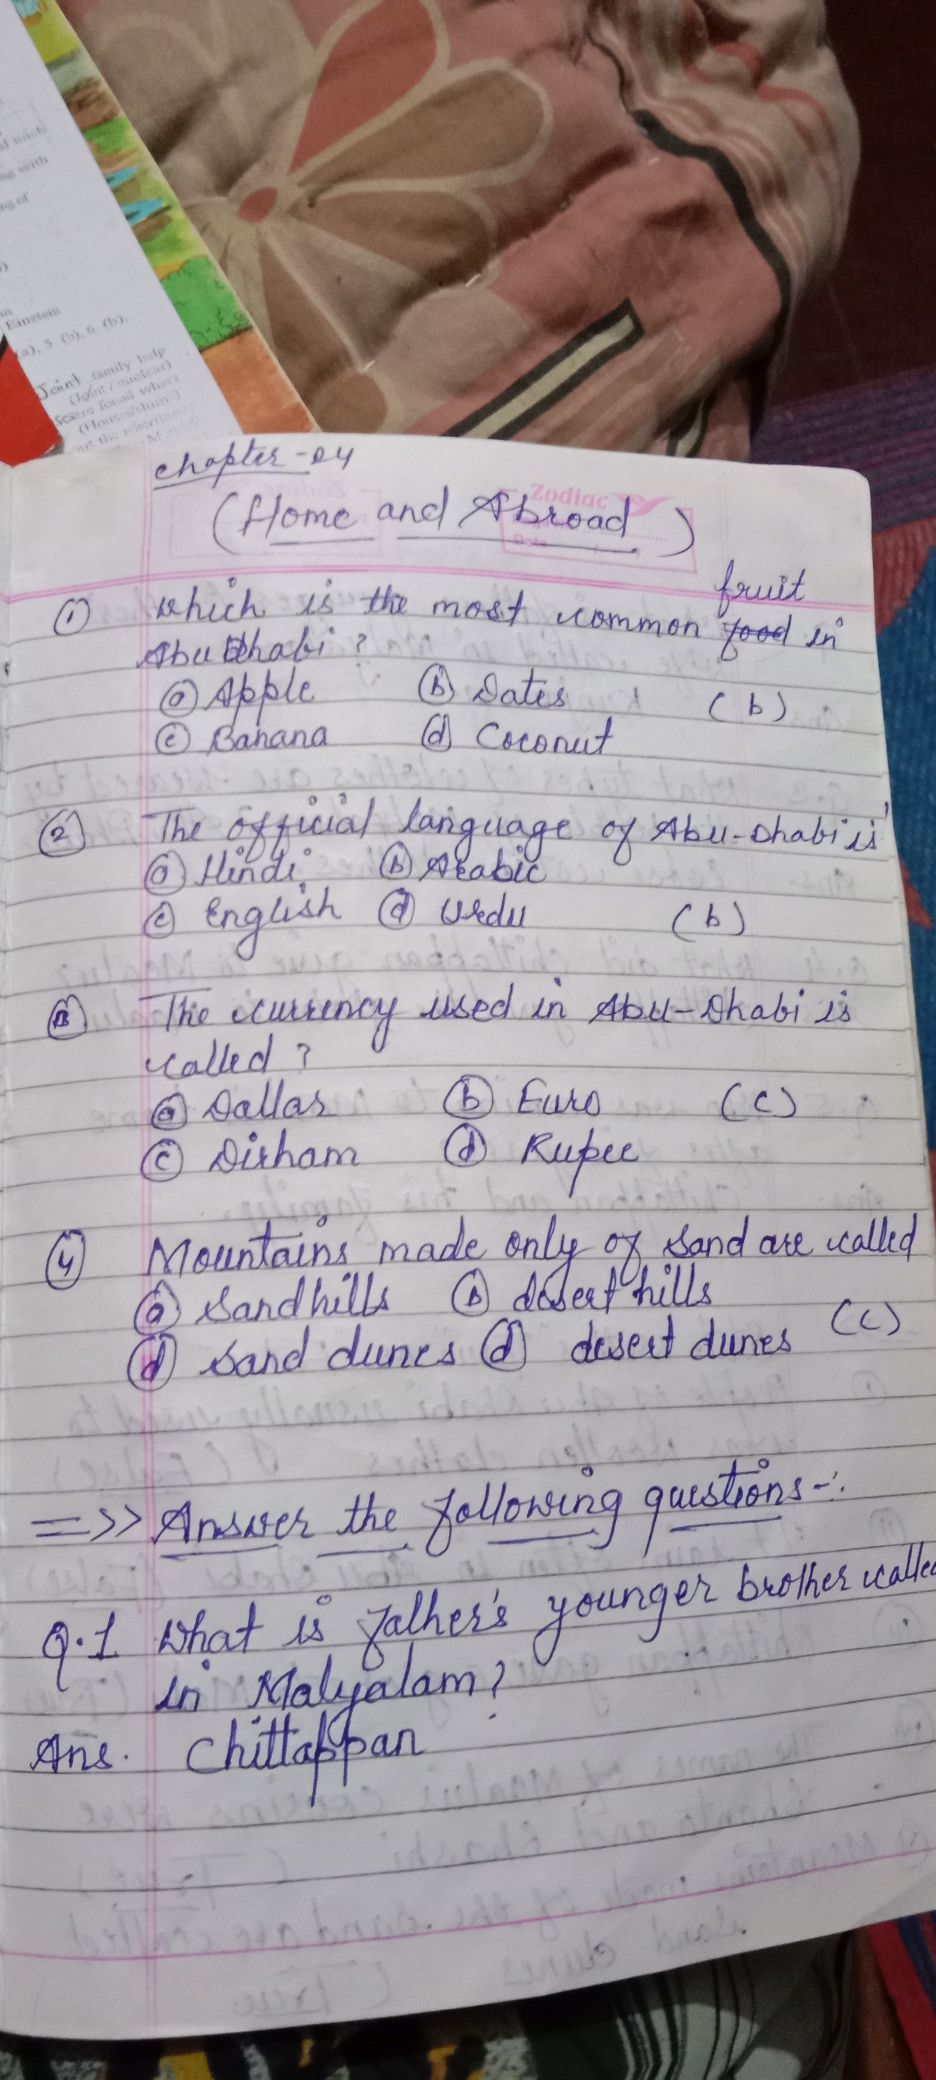 d made
ng with
ng of
Einstein
(a), 5. (b), 6. (b),
Joint family help
(Joint/nuclear)
(Houses/shims)
Chapter-04
Zodiac
(Home and Abroad)
fruit
① which is the most common food in
Abu Dhabi?
ⓐ Apple ⓑ Dates (b)
ⓒ Banana ⓓ Coconut
② The official language of Abu-Dhabi is
ⓐ Hindi ⓑ Arabic
ⓒ English ⓓ Urdu (b)
③ The currency used in Abu-Dhabi is
called?
ⓐ Dallas ⓑ Euro (c)
ⓒ Dirham ⓓ Rupee
④ Mountains made only of sand are called
ⓐ sandhills ⓑ desert hills
ⓓ sand dunes ⓓ desert dunes (c)
=>>> Answer the following questions-:
Q.1 What is father's younger brother called
in Malyalam?
Ans. Chittappan